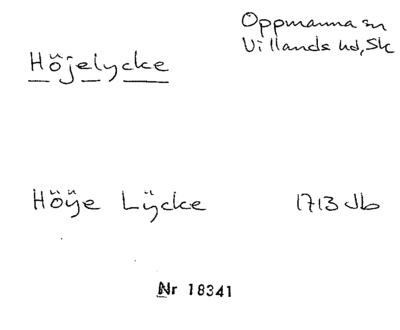 Oppmanna sn
Villands hd, Sk
Höjelycke
Höÿe Lÿcke 1713 Jb
Nr 18341